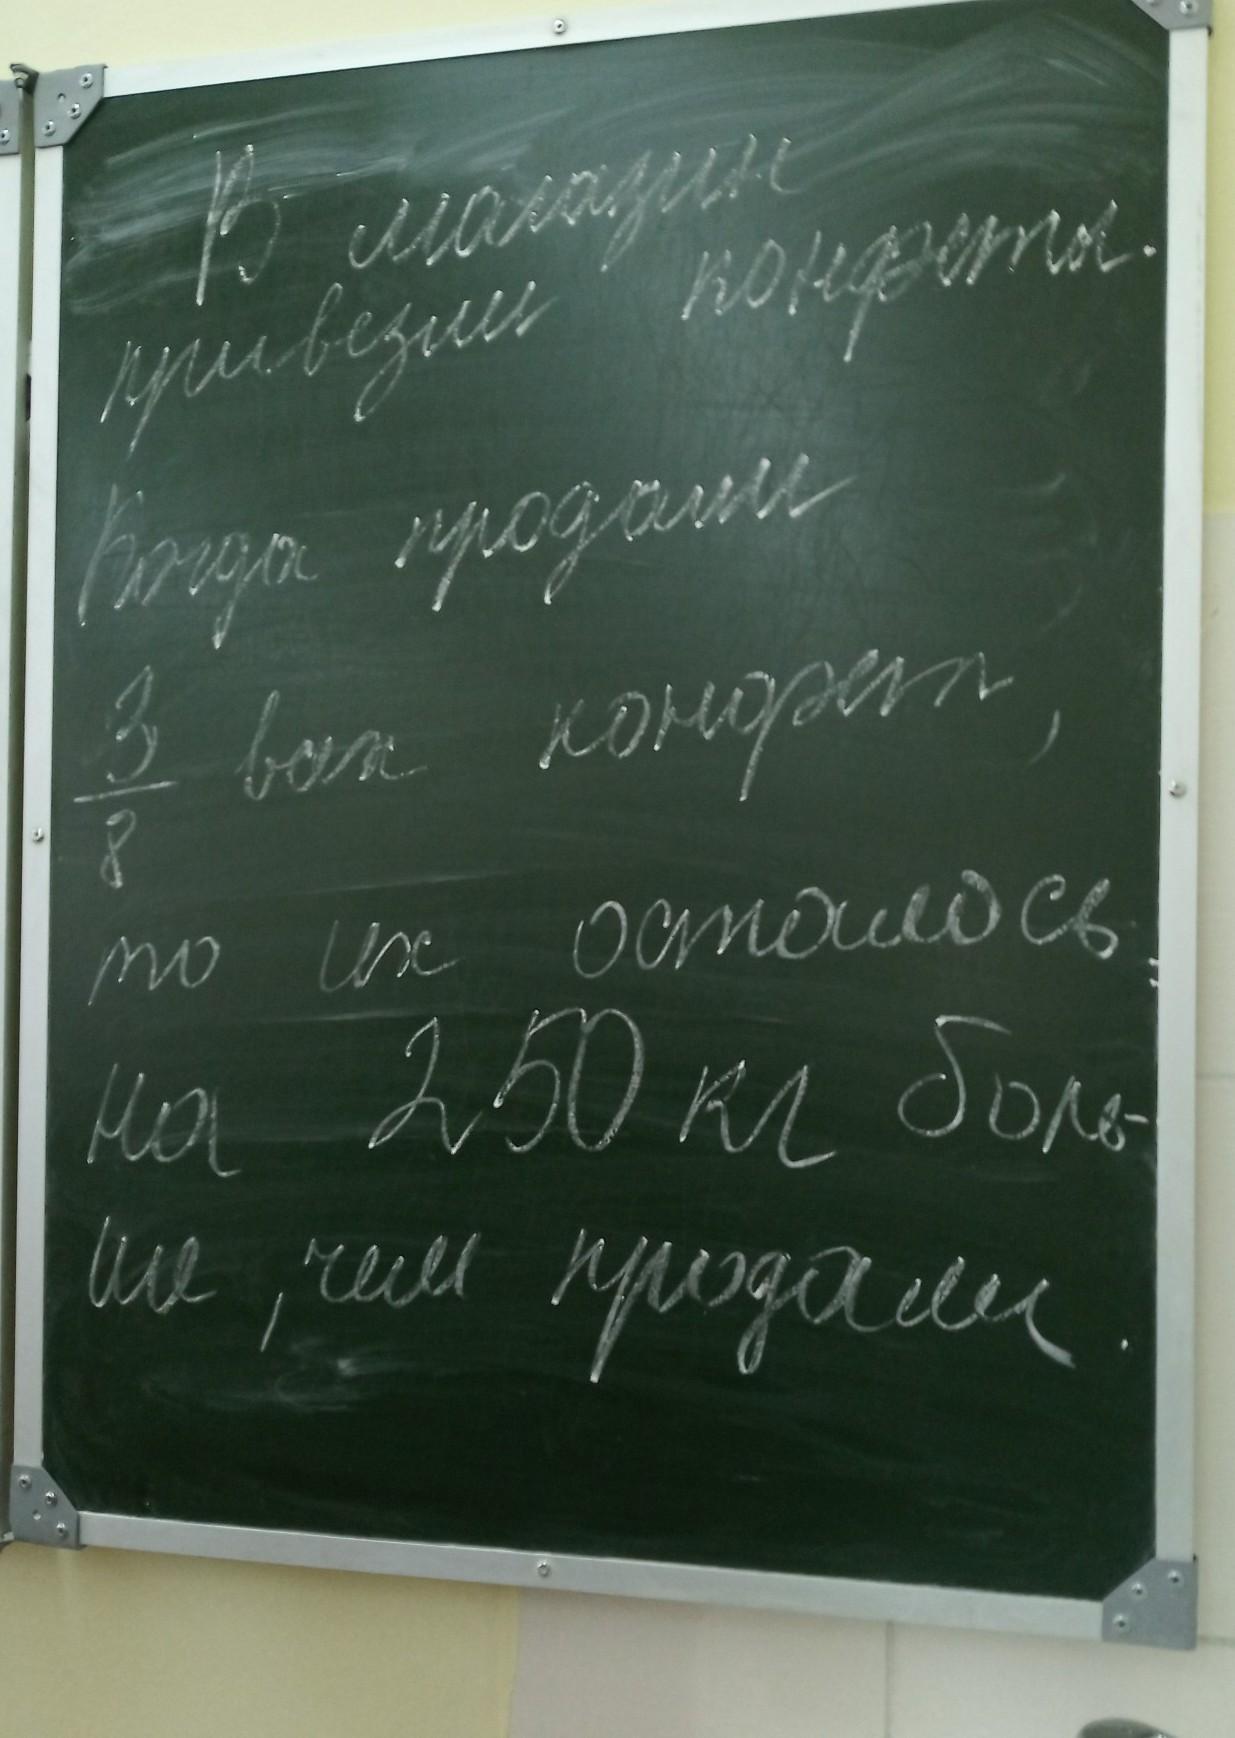 В магазин
привезли конфеты.
Когда продали
3/8 вах конфет,
то их осталось
на 250 кг боль-
ше, чем продали.